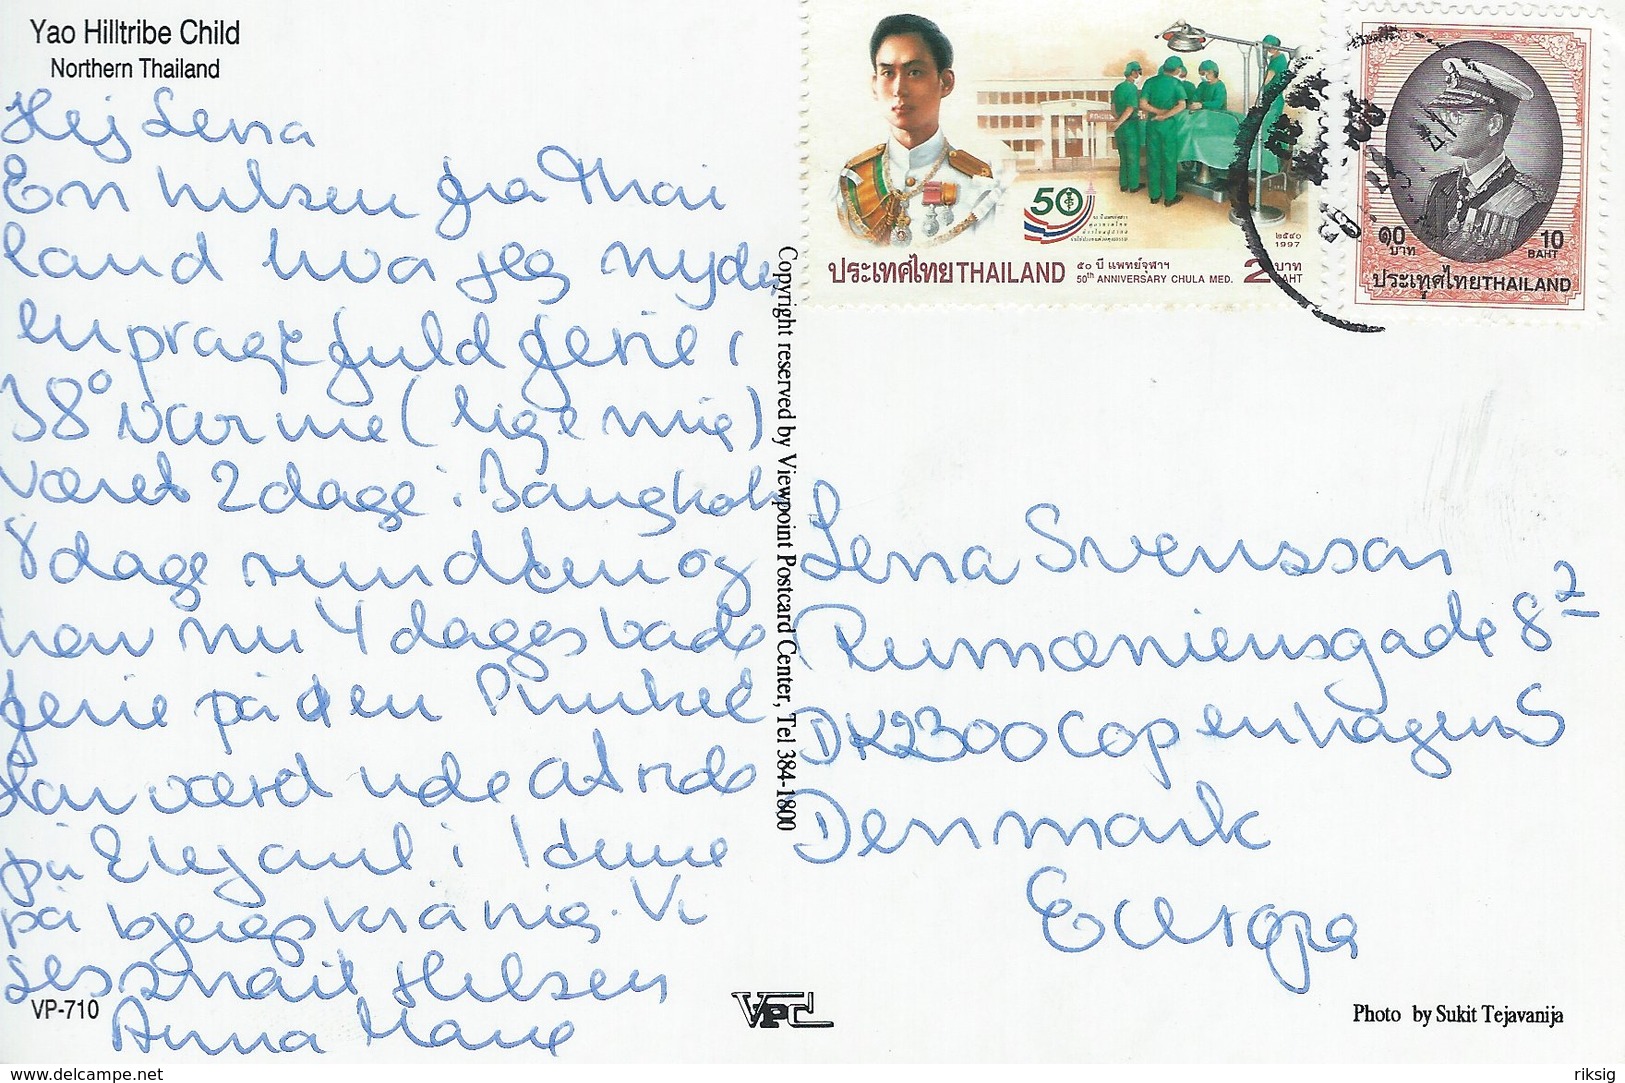 Yao Hilltribe Child
Northern Thailand
Hej Lena
En hilsen fra Thai
land hvor jeg nyder
en pragtfuld ferie i
38° varme (lige mig)
været 2 dage i Bangkok
8 dage rundten og
har nu 4 dages bade
ferie på øen Phuket
har været ude at ride
på Elefant i 1 time
på bjergskråning. Vi
ses snart Hilsen
Anna Marie
VP-710
Copyright reserved by Viewpoint Postcard Center, Tel 384-1800
VPC
ประเทศไทย THAILAND
๕๐ ปี แพทย์จุฬาฯ
50th ANNIVERSARY CHULA MED.
50
๒๕๔๐
1997
2 บาท
BAHT
๑๐
บาท
10
BAHT
ประเทศไทย THAILAND
Lena Svensson
Rumæniensgade 8 2
DK2300 Copenhagen S
Denmark
Europa
Photo by Sukit Tejavanija
www.delcampe.net
riksig